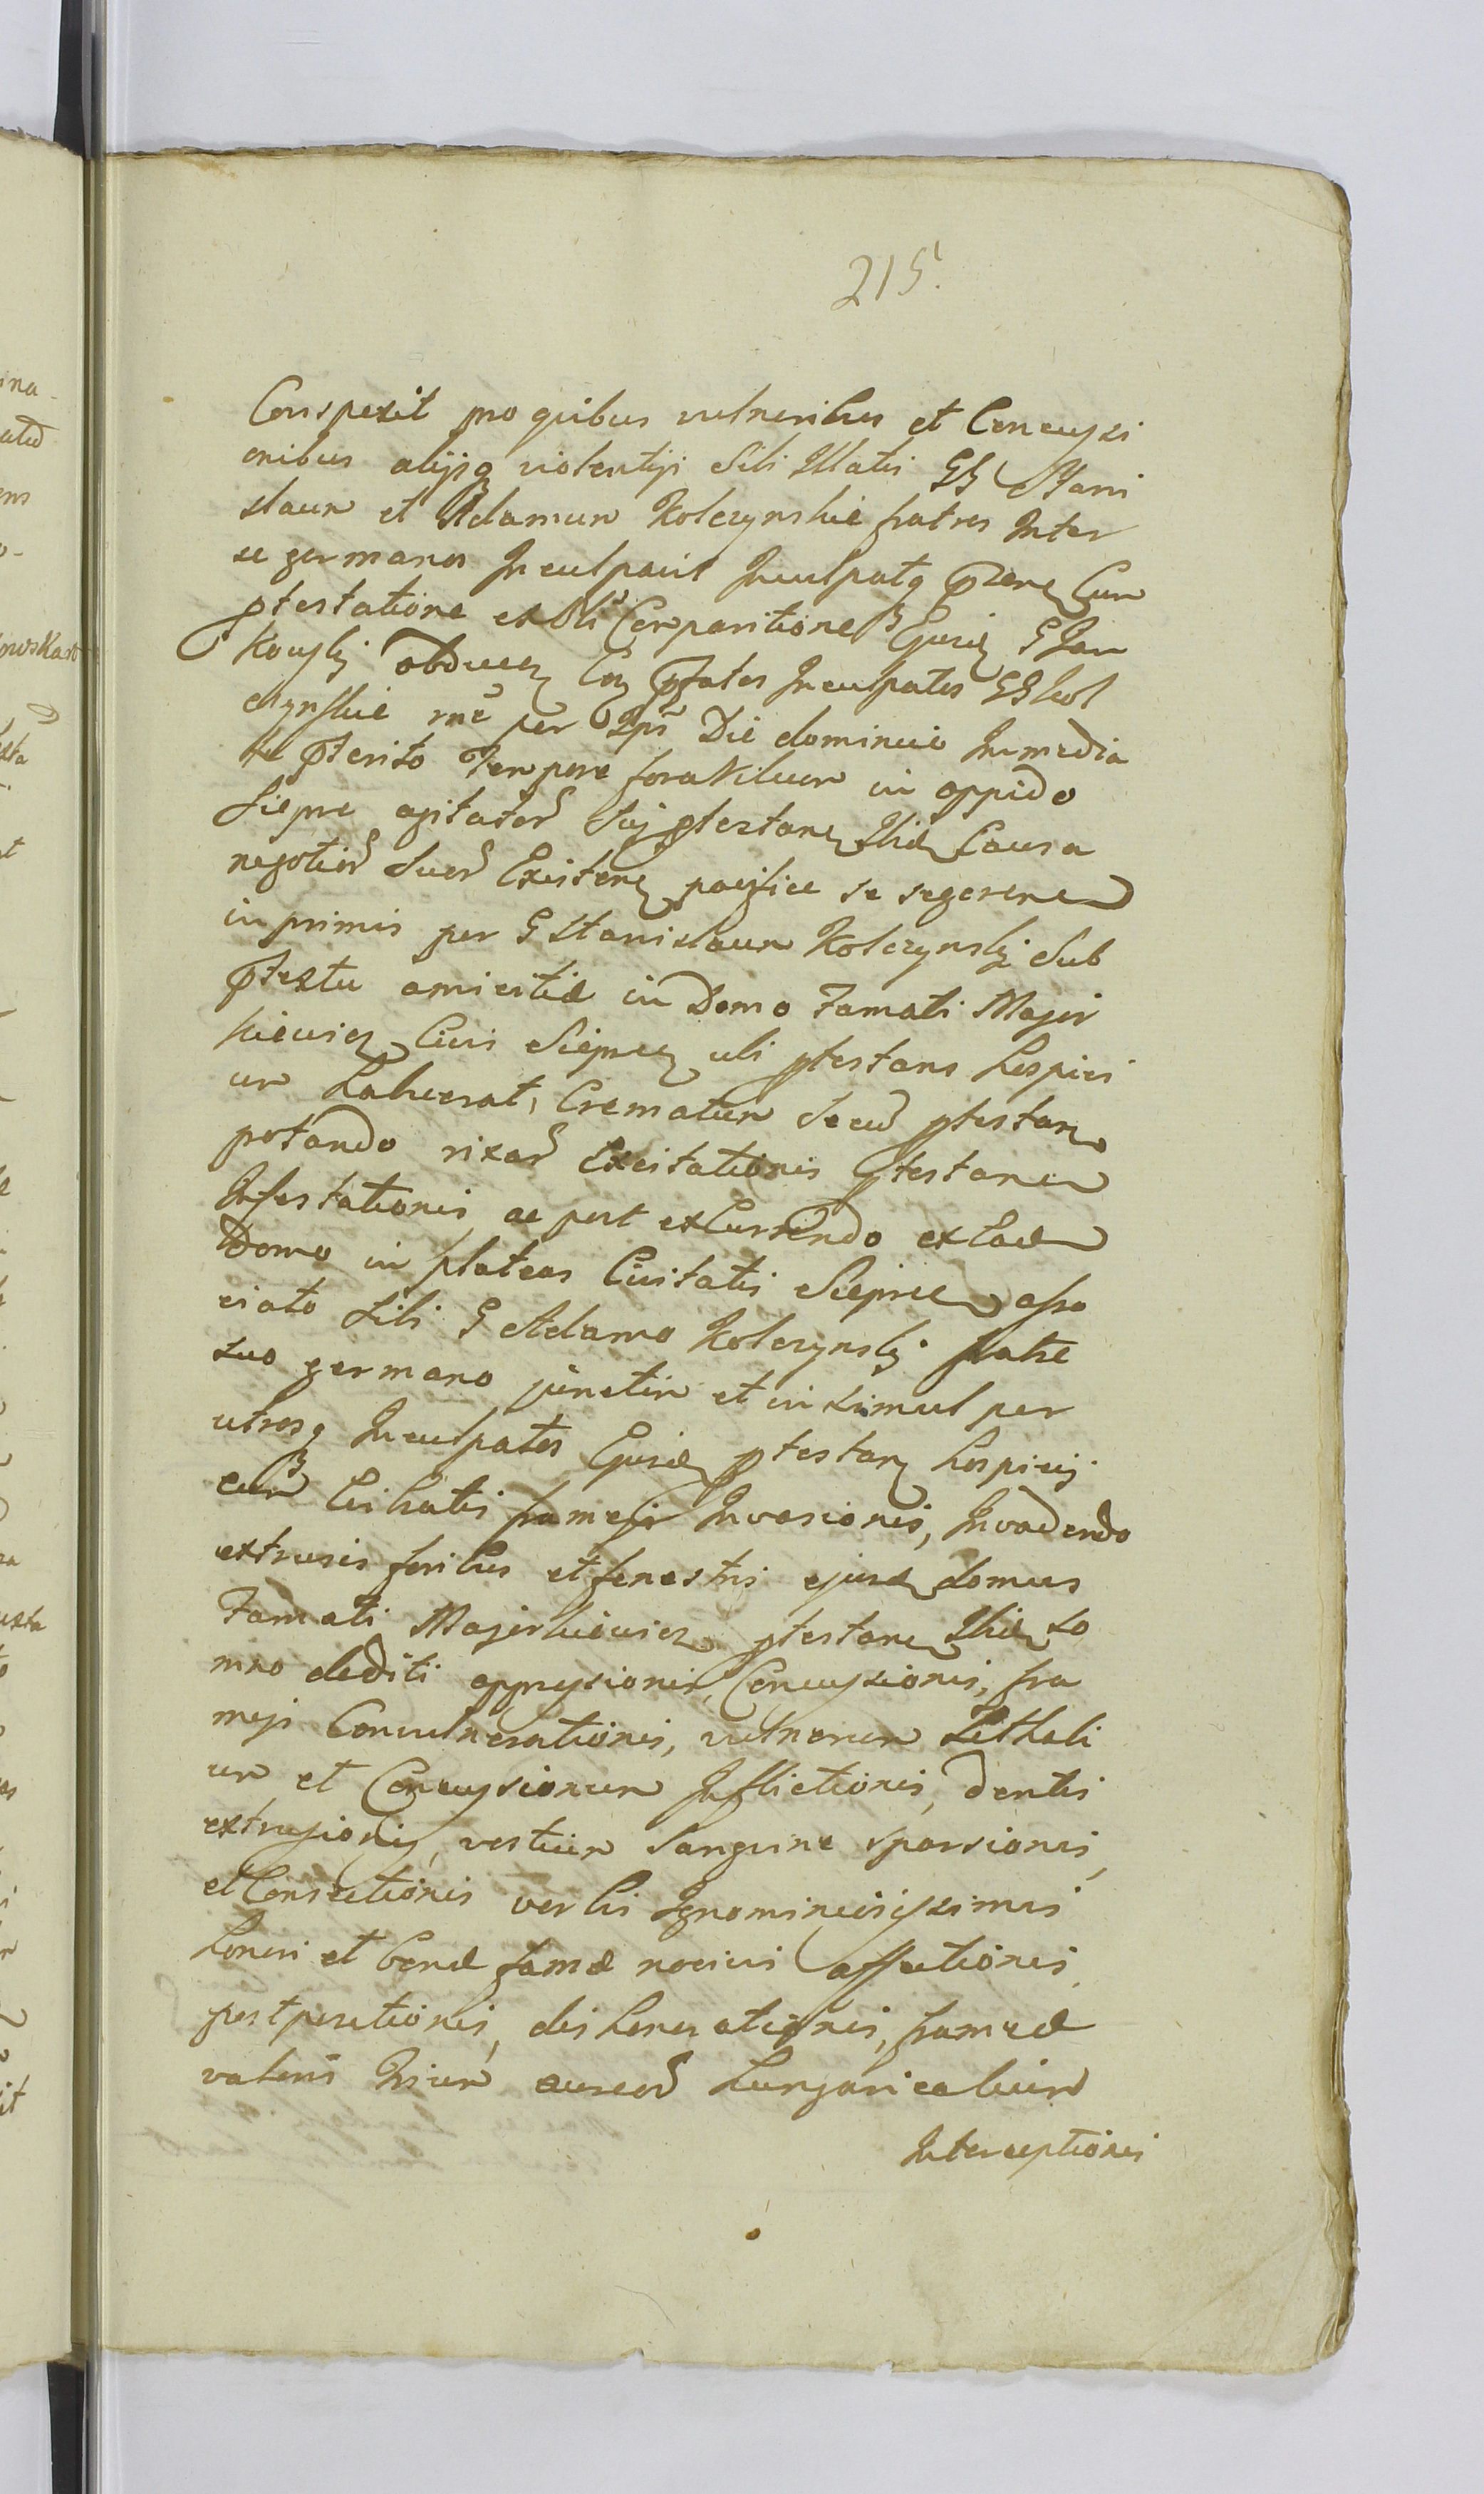 215.
Conspexit pro quibus vulneribus et Concussi
onibus alijsq violentijs Sibi Illatis GG Stani
slaum et Adamum Kolczynskie fratres Inter
se germanos Inculpavit Inculpatq Cum
ptestatione et Comparitione Ejusd G Jan
kowskj obducen Con Pfatos Inculpatos GG Kol
czynskie rne per Ipsos Die dominico Immedia
te pterito Tempore foralium in oppido
Sieprc agitator Suj ptestan Ibid Causa
negotior Suor Existen pacifice se regeren
in primis per G Stanislaum Kolczynskj Sub
ptextu amicitiæ in Domo Famati Majer
kiewicz Civis Sieprcen ubi ptestans hospici
um habuerat, Crematum Secu ptestan
potando rixar Excitationis ptestanem
Infestationis, ac post excurrendo ex ead
Domo in plateas Civitatis Sieprcen asso
ciato Sibi G Adamo Kolczynskj fratre
suo germano junctim et in simul per
utrosq Inculpatos Ejusd ptestan hospicij
cum Libratis frameis Invasionis, Invadendo
extrusis foribus et fenestris ejusd domus
Famati Majerkiewicz ptestan Ibid so
mno dediti oppressionis, Concussionis, fra
meis Convulnerationis, vulnerum Lethali
um et Concussionum Inflictionis, dentis
extrusionis, vestium Sanguine sparsionis,
et Consectionis verbis Ignominiosissimis
honori et bonæ famæ nocivis affectionis,
post persecutionis, dishonorationis, frameæ
valoris trium aureor hungaricalium
Interceptionis